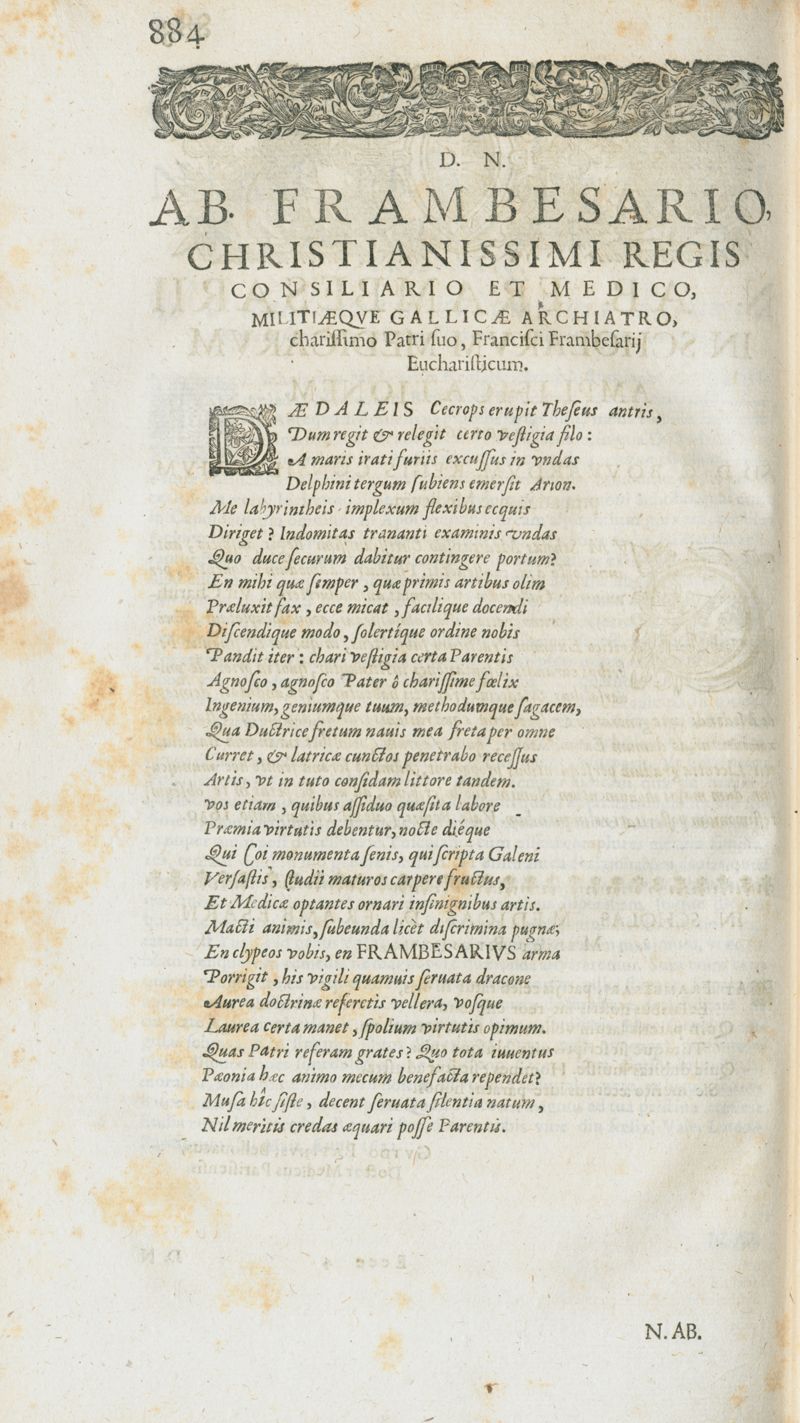 884
D. N.
AB. FRAMBESARIO,
CHRISTIANISSIMI REGIS
CONSILIARIO ET MEDICO,
MILITIÆQVE GALLICÆ ARCHIATRO,
chariſſimo Patri ſuo, Franciſci Frambeſarij
Euchariſticum.
DÆDALEIS Cecrops erupit Theſeus antris,
Dum regit & relegit certo veſtigia filo :
A maris irati furiis excuſſus in vndas
Delphini tergum ſubiens emerſit Arion.
Me labyrintheis implexum flexibus ecquis
Diriget ? Indomitas trananti examinis vndas
Quo duce ſecurum dabitur contingere portum?
En mihi quæ ſemper, quæ primis artibus olim
Præluxit fax, ecce micat, facilique docendi
Diſcendique modo, ſolertíque ordine nobis
Pandit iter : chari veſtigia certa Parentis
Agnoſco, agnoſco Pater ô chariſſime fœlix
Ingenium, geniumque tuum, methodumque ſagacem,
Qua Ductrice fretum nauis mea freta per omne
Curret, & Iatricæ cunctos penetrabo receſſus
Artis, vt in tuto conſidam littore tandem.
vos etiam, quibus aſſiduo quæſita labore
Præmia virtutis debentur, nocte diéque
Qui Coi monumenta ſenis, qui ſcripta Galeni
Verſaſtis, ſtudii maturos carpere fructus,
Et Medicæ optantes ornari inſinignibus artis.
Macti animis, ſubeunda licèt diſcrimina pugnæ;
En clypeos vobis, en FRAMBESARIVS arma
Porrigit, his vigili quamuis ſeruata dracone
Aurea doctrinæ refertis vellera, voſque
Laurea certa manet, ſpolium virtutis opimum.
Quas Patri referam grates? Quo tota iuuentus
Pæonia hæc animo mecum benefacta rependet?
Muſa hîc ſiſte, decent ſeruata ſilentia natum,
Nil meritis credas æquari poſſe Parentis.
N. AB.